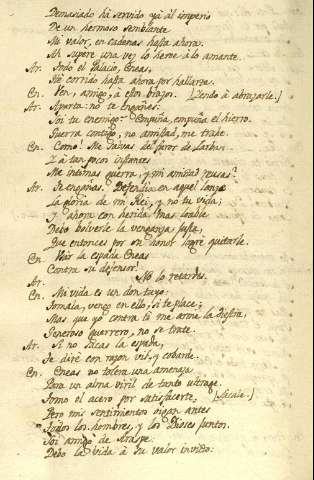 Demasiado há servido ya al imperio
De un hermoso semblante
Mi valor, en cadenas hasta ahora.
Ah supere una vez lo heroe á lo amante.
Ar. Todo el Palacio, Eneas,
Hé corrido hasta ahora por hallarte.
En. Ven, amigo, á estos brazos. (Yendo á abrazarle.)
Ar. Aparta: no te engañes:
Soi tu enemigo. Empuña, empuña el hierro.
Guerra contigo, no amistad, me trahe.
En. Como! Me salvas del furor de Iarbas
I á tan pocos instantes
Me intimas guerra, y mi amistad reusas?
Ar. Te engañas. Defendia en aquel lance
La gloria de mi Rei, y no tu vida;
Y ahora con herida mas loable
Debo bolverle la venganza justa,
Que entonces por su honor logré quitarle.
En. la espada Eneas
Contra su defensor!
Ar. No lo retardes.
En. Mi vida es un don tuyo.
Tomala, vengo en ello, si te place;
Mas que yó contra tí me arme la diestra,
Generoso guerrero, no se trate.
Ar. Si no sacas la espada,
Te diré con razon vil, y cobarde.
En. Eneas no tolera una amenaza
Para un alma viril de tanto ultrage.
Tomo el acero por satisfacerte, (Sacale.)
Pero mis sentimientos oigan antes
los hombres, y los Dioses juntos.
Soi amigo de Araspe.
Debo la vida á su valor invicto: